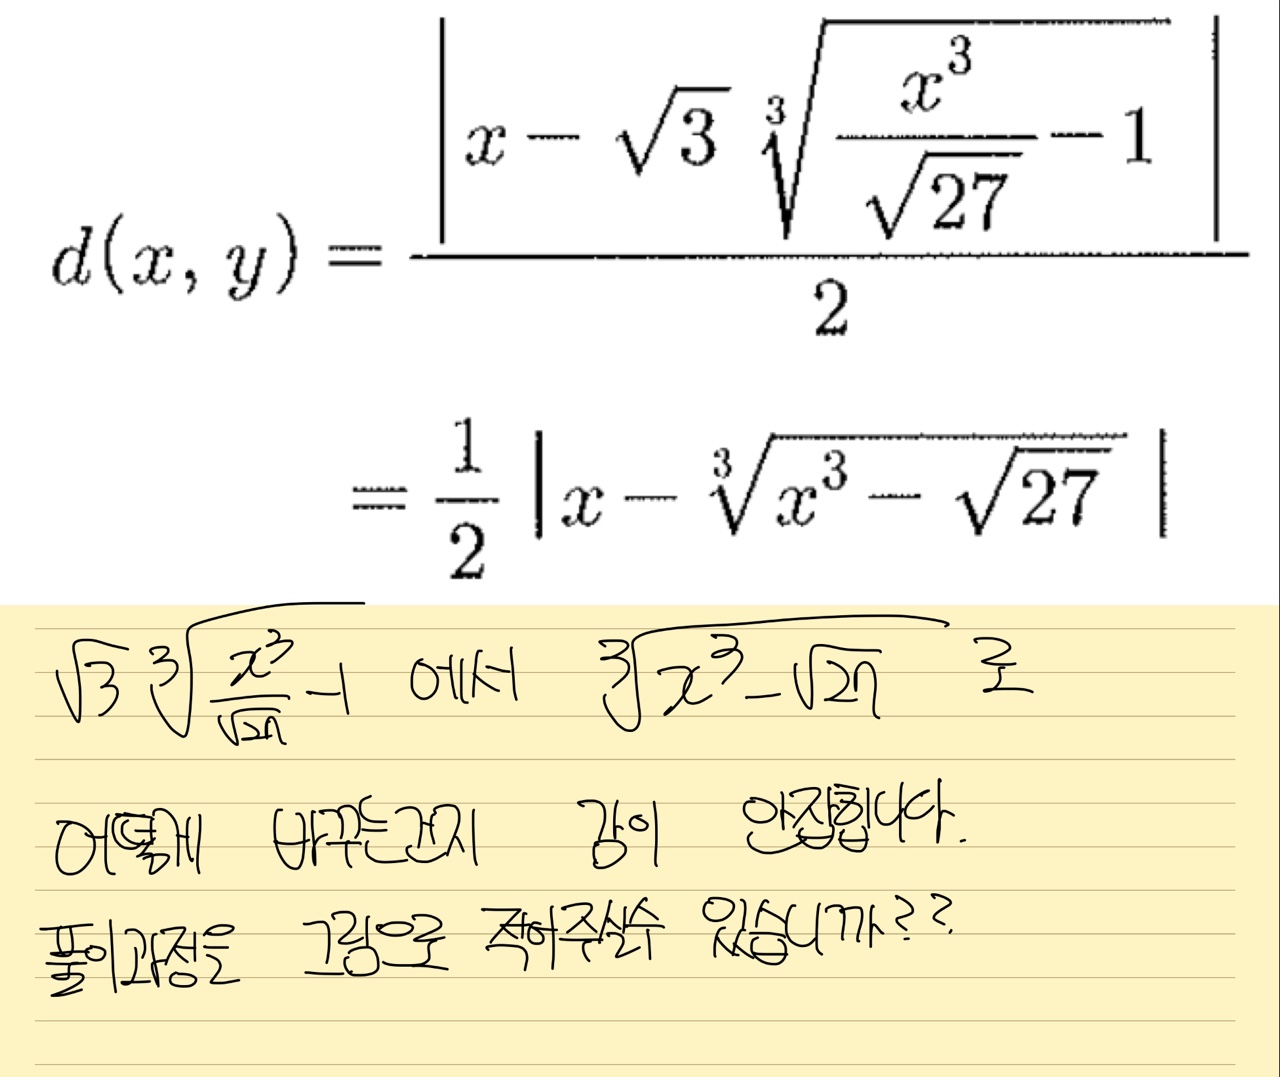 d(x, y) = |x − √3 ∛(x³/√27 − 1)| / 2
= 1/2 |x − ∛(x³ − √27)|
√3 ∛(x³/√27 − 1) 에서 ∛(x³ − √27) 로
어떻게 바꾸는건지 감이 안잡힙니다.
풀이과정을 그림으로 적어주실수 있습니까??